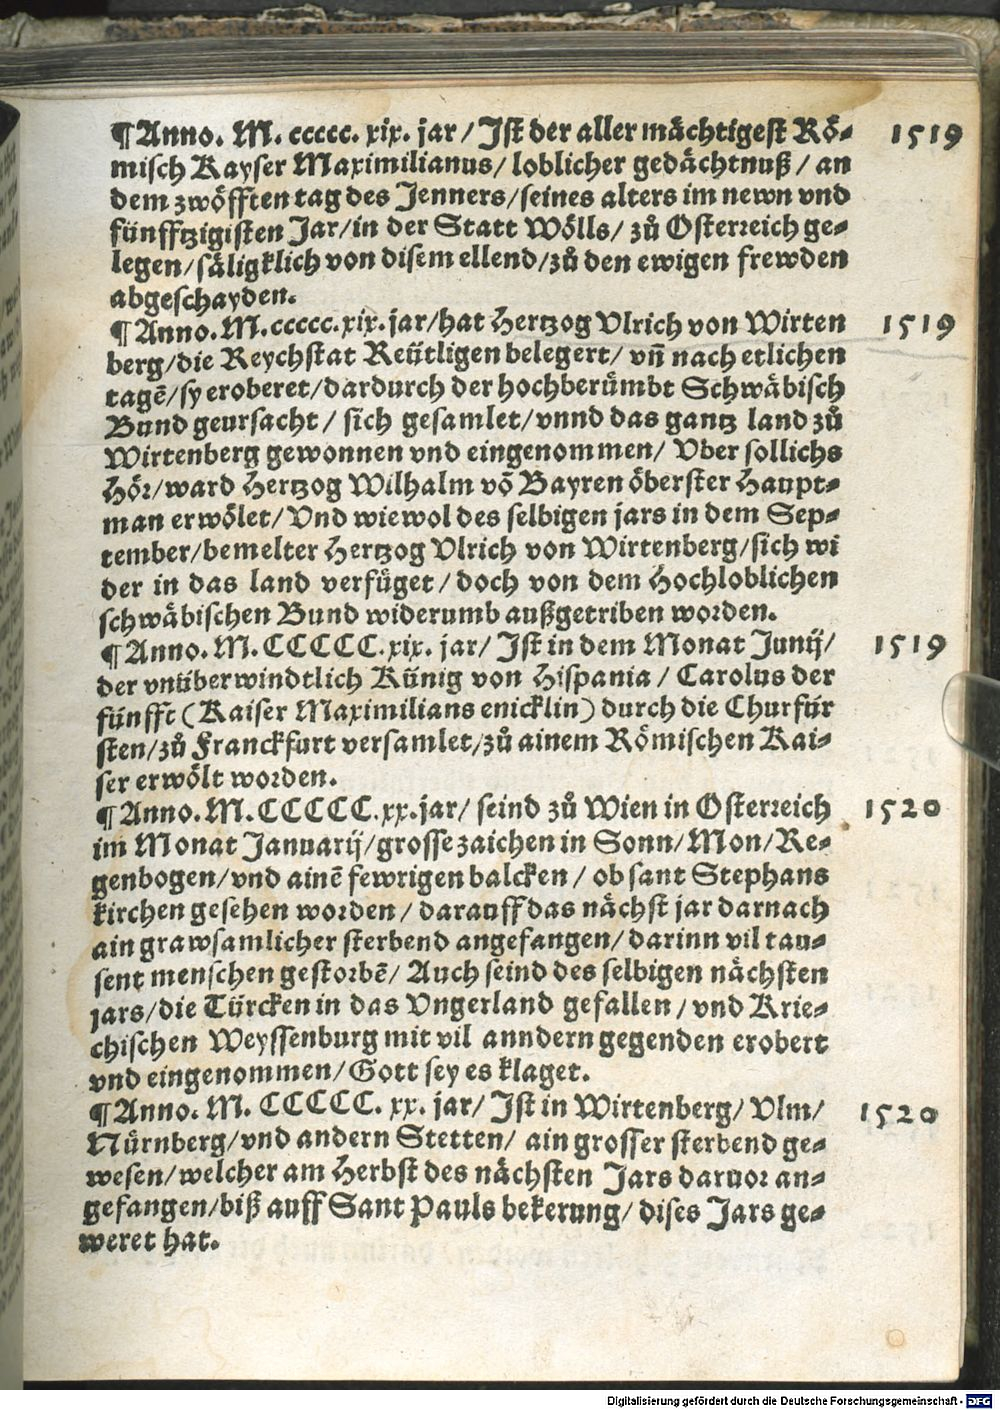 ¶Anno. M. ccccc. xix. jar / Jst der aller mächtigest Rö- 1519
misch Kayser Maximilianus / loblicher gedächtnuß / an
dem zwöfften tag des Jenners / seines alters im newn vnd
fünfftzigisten Jar / in der Statt Wölls / zů Osterreich ge-
legen / säligklich von disem ellend / zů den ewigen frewden
abgeschayden.
¶Anno. M.ccccc.xix. jar / hat Hertzog Vlrich von Wirten 1519
berg / die Reychstat Reütligen belegert / vñ nach etlichen
tagē / sy eroberet / dardurch der hochberümbt Schwäbisch
Bund geursacht / sich gesamlet / vnnd das gantz land zů
Wirtenberg gewonnen vnd eingenommen / Vber sollichs
Hör / ward Hertzog Wilhalm võ Bayren öberster Haupt-
man erwölet / Vnd wiewol des selbigen jars in dem Sep-
tember / bemelter Hertzog Vlrich von Wirtenberg / sich wi
der in das land verfüget / doch von dem Hochloblichen
schwäbischen Bund widerumb außgetriben worden.
¶Anno. M. CCCCC.xix. jar / Jst in dem Monat Junij / 1519
der vnüberwindtlich Künig von Hispania / Carolus der
fünfft (Kaiser Maximilians enicklin) durch die Churfür
sten / zů Franckfurt versamlet / zů ainem Römischen Kai-
ser erwölt worden.
¶Anno. M. CCCCC.xx. jar / seind zů Wien in Osterreich 1520
im Monat Januarij / grosse zaichen in Sonn / Mon / Re-
genbogen / vnd ainē fewrigen balcken / ob sant Stephans
kirchen gesehen worden / darauff das nächst jar darnach
ain grawsamlicher sterbend angefangen / darinn vil tau-
sent menschen gestorbē / Auch seind des selbigen nächsten
jars / die Türcken in das Vngerland gefallen / vnd Krie-
chischen Weyssenburg mit vil anndern gegenden erobert
vnd eingenommen / Gott sey es klaget.
¶Anno. M. CCCCC. xx. jar / Jst in Wirtenberg / Vlm / 1520
Nürnberg / vnd andern Stetten / ain grosser sterbend ge-
wesen / welcher am Herbst des nächsten Jars daruor an-
gefangen / biß auff Sant Pauls bekerung / dises Jars ge-
weret hat.
Digitalisierung gefördert durch die Deutsche Forschungsgemeinschaft - DFG